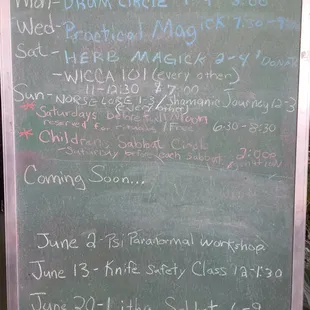 Mon- DRUM CIRCLE
Wed- Practical Magick 7:30-9:00
Sat- HERB MAGICK 2-4 *Donation
-WICCA 101 (every other)
11-12:30 $7.00
Sun- NORSE LORE 1-3/Shamanic Journey 12-3
(every other)
* Saturdays before full Moon
reserved for rituals/Free 6:30-8:30
* Children Sabbat Circle
-Saturday before each Sabbat 2:00
Donation
Coming Soon...
June 2-Psi Paranormal Workshop
June 13-Knife Safety Class 12-1:30
June 20-Litha Sabbat 6-9